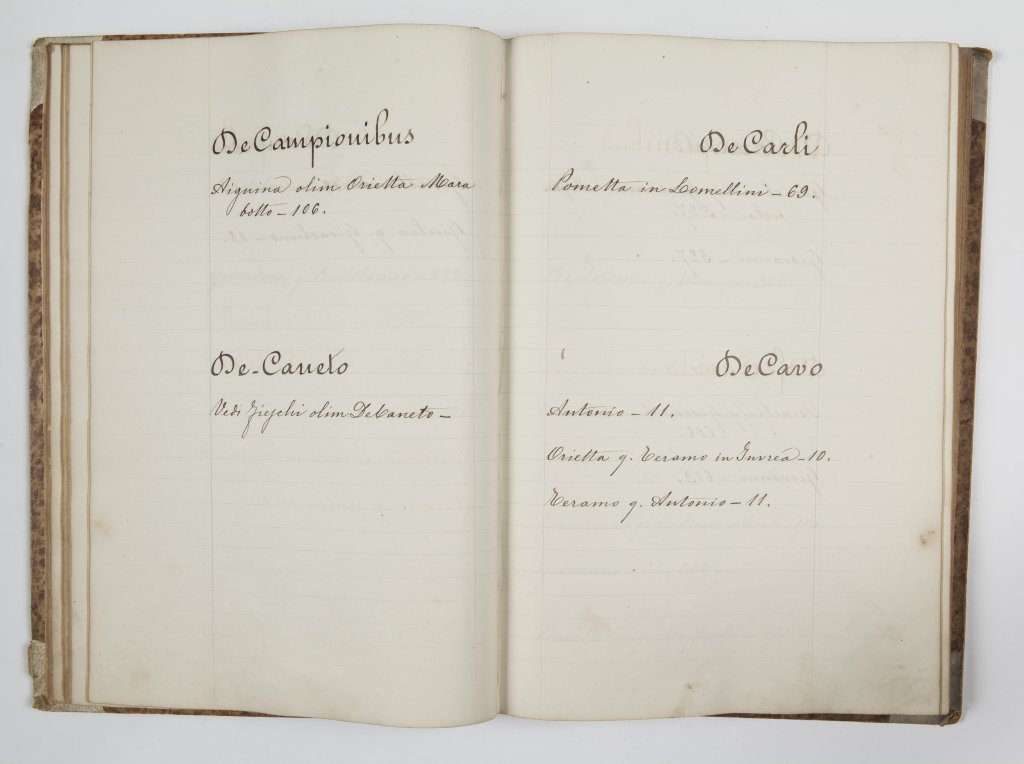 DeCampionibus
Aiguina olim Orietta Mara
botto - 106.
De-Caneto
Vedi Fieschi olim DeCaneto -
DeCarli
Pometta in Lomellini - 69.
DeCavo
Antonio - 11.
Orietta q. Teramo in Invrea - 10.
Teramo q. Antonio - 11.